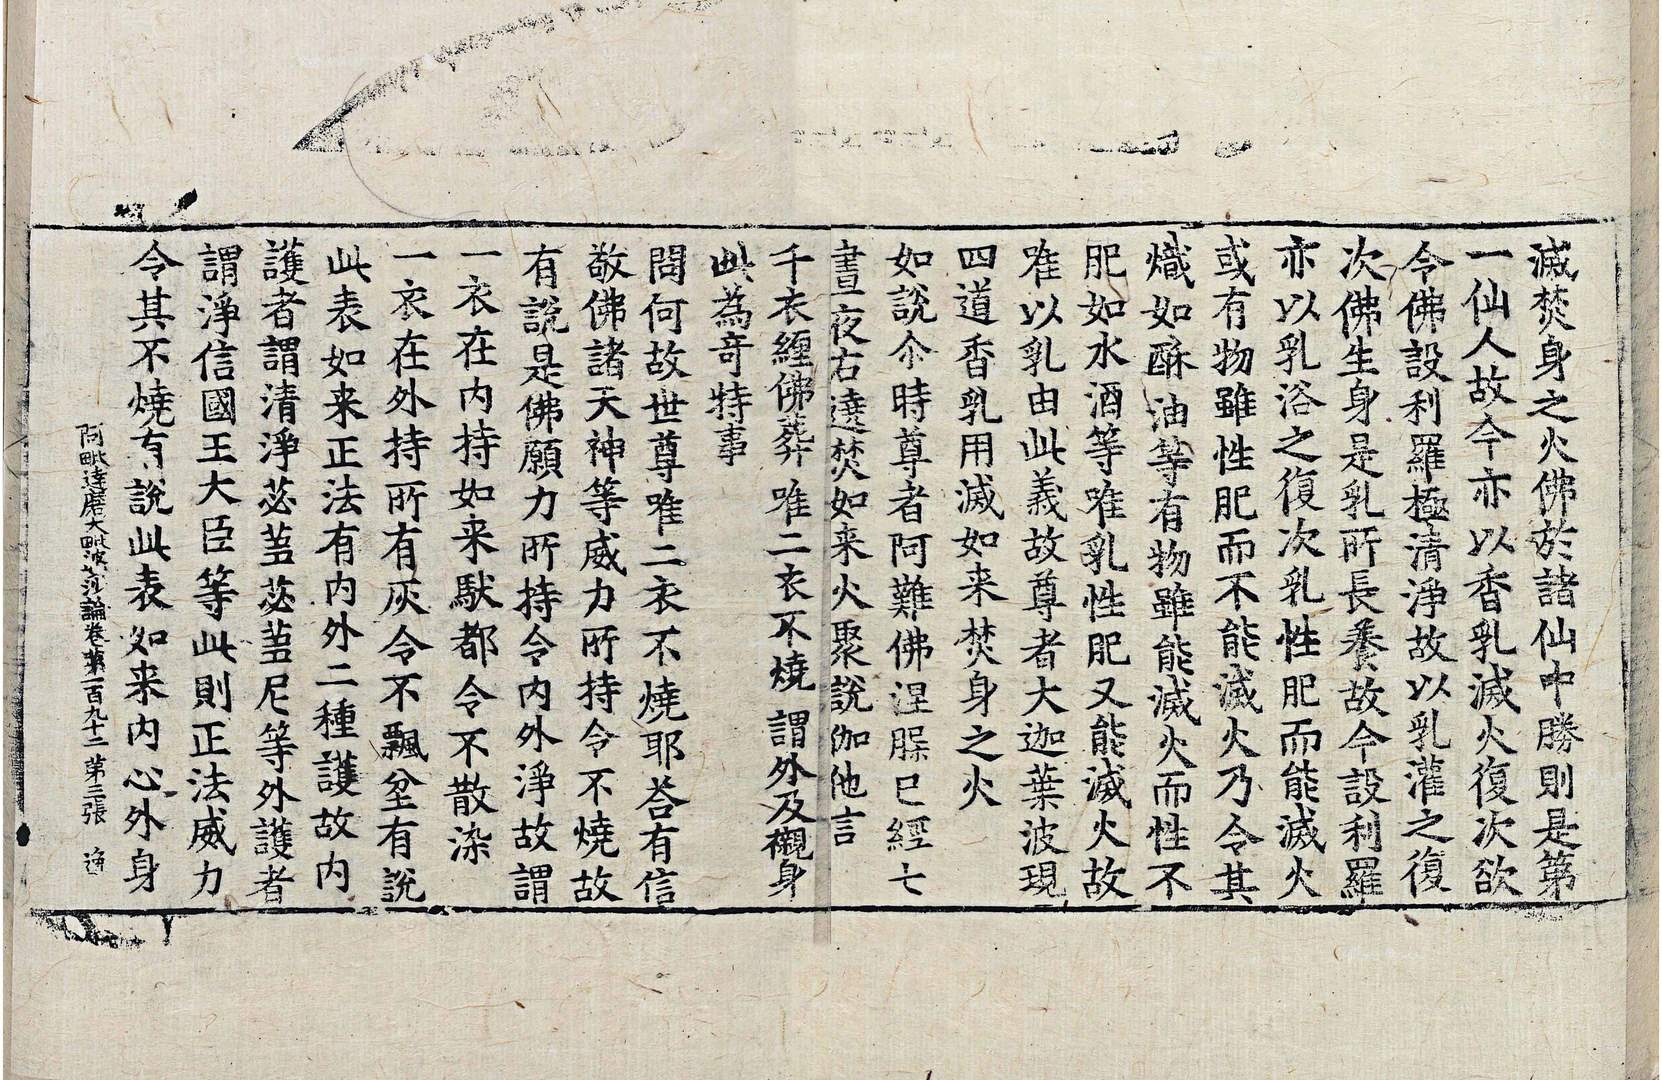 滅焚身之火佛於諸仙中勝則是第
一仙人故今亦以香乳滅火復次欲
令佛設利羅極清淨故以乳灌之復
次佛生身是乳所長養故今設利羅
亦以乳浴之復次乳性肥而能滅火
或有物雖性肥而不能滅火乃令其
熾如酥油等有物雖能滅火而性不
肥如水酒等唯乳性肥又能滅火故
唯以乳由此義故尊者大迦葉波現
四道香乳用滅如来焚身之火
如說尒時尊者阿難佛涅槃已經七
晝夜右遶焚如来火聚說伽他言
千衣纏佛葬 唯二衣不燒 謂外及襯身
此為奇特事
問何故世尊唯二衣不燒耶荅有信
敬佛諸天神等威力所持令不燒故
有說是佛願力所持令内外淨故謂
一衣在内持如来馱都令不散染
一衣在外持所有灰令不飄坌有說
此表如来正法有内外二種護故内
護者謂清淨苾芻苾芻尼等外護者
謂淨信國王大臣等此則正法威力
令其不燒有說此表如来内心外身
阿毗達磨大毗婆沙論卷第一百九十二 第三張